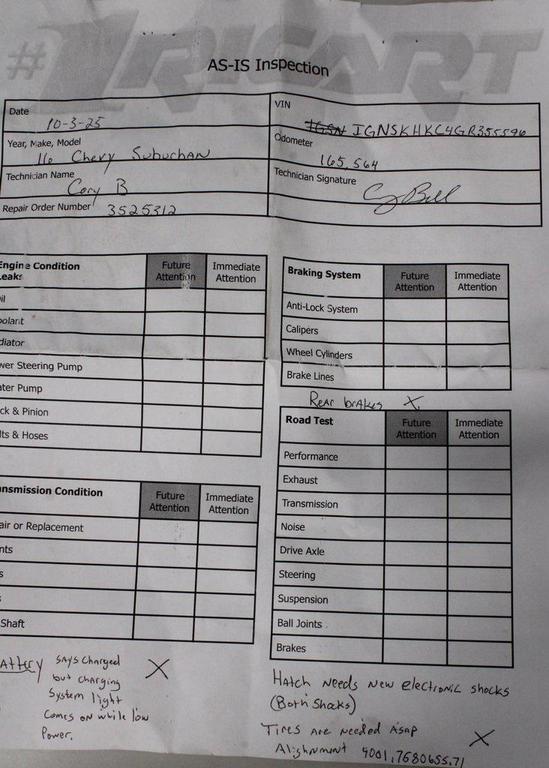 #1RICART
AS-IS Inspection
Date 10-3-25
VIN IGSN IGNSKHKC4GR355596
Year, Make, Model 16 Chevy Suburban
Odometer 165,564
Technician Name Cory B
Technician Signature Cory Bell
Repair Order Number 3525312
Engine Condition Future Attention Immediate Attention
Leaks
il
oolant
diator
wer Steering Pump
ater Pump
ck & Pinion
lts & Hoses
Braking System Future Attention Immediate Attention
Anti-Lock System
Calipers
Wheel Cylinders
Brake Lines
Rear brakes X
Road Test Future Attention Immediate Attention
Performance
Exhaust
Transmission
Noise
Drive Axle
Steering
Suspension
Ball Joints
Brakes
ansmission Condition Future Attention Immediate Attention
air or Replacement
nts
s
s
Shaft
attery says charged X
but charging
system light
comes on while low
power.
Hatch needs new electronic shocks
(Both Shocks)
Tires are needed asap X
Alignment 4001,7680655.71